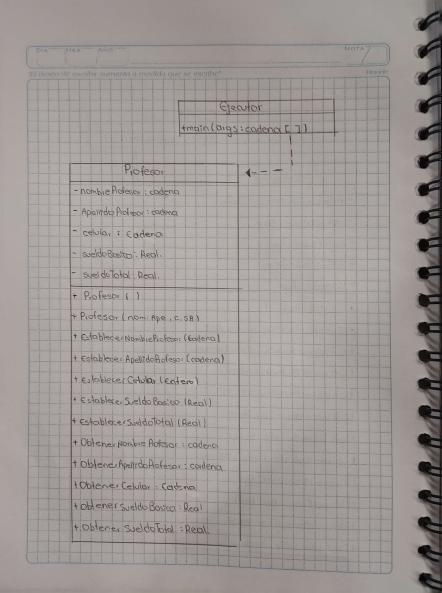 DIA MES AÑO NOTA
"El deseo de escribir aumenta a medida que se escribe"
Ejecutor
+main(args:cadena[])
Profesor
- nombreProfesor : cadena
- ApellidoProfesor : cadena
- celular : Cadena
- sueldoBasico : Real.
- sueldoTotal : Real.
+ Profesor ( )
+ Profesor (nom, Ape, C, SB)
+ EstablecerNombreProfesor (Cadena)
+ EstablecerApellidoProfesor (cadena)
+ EstablecerCelular (Entero)
+ Establecer SueldoBasico (Real)
+ Establecer SueldoTotal (Real)
+ ObtenerNombreProfesor : cadena
+ ObtenerApellidoProfesor : cadena
+ ObtenerCelular : Cadena
+ Obtener SueldoBasico : Real
+ Obtener SueldoTotal : Real.